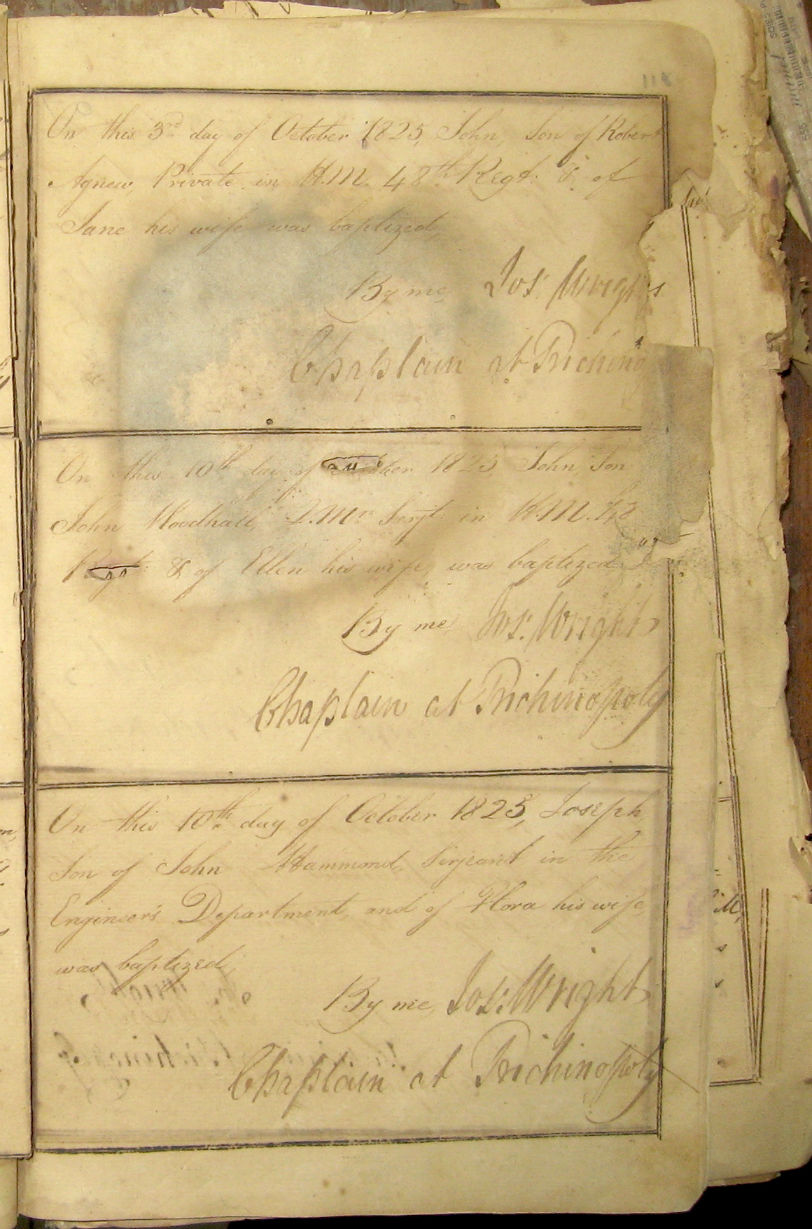 On this 3rd day of October 1825, John, Son of Robert
Agnew, Private in H.M. 48th Regt. & of
Jane his wife was baptized,
By me, Jos: Wright
Chaplain at Trichinop
On this 10th day of 1825 John Son
John Woodhall, Q.Mr Serjt in H.M. 48
& of Ellen his wife, was baptized
By me Jos: Wright
Chaplain at Trichinopoly
On this 10th day of October 1825, Joseph
Son of John Hammond, Serjeant in the
Engineer's Department, and of Flora his wife
was baptized,
By me, Jos: Wright
Chaplain at Trichinopoly